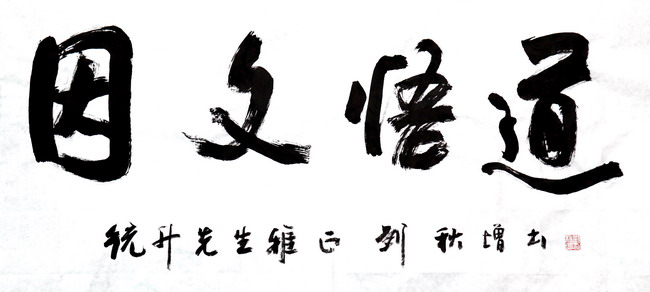 因文悟道
统升先生雅正 刘秋增书